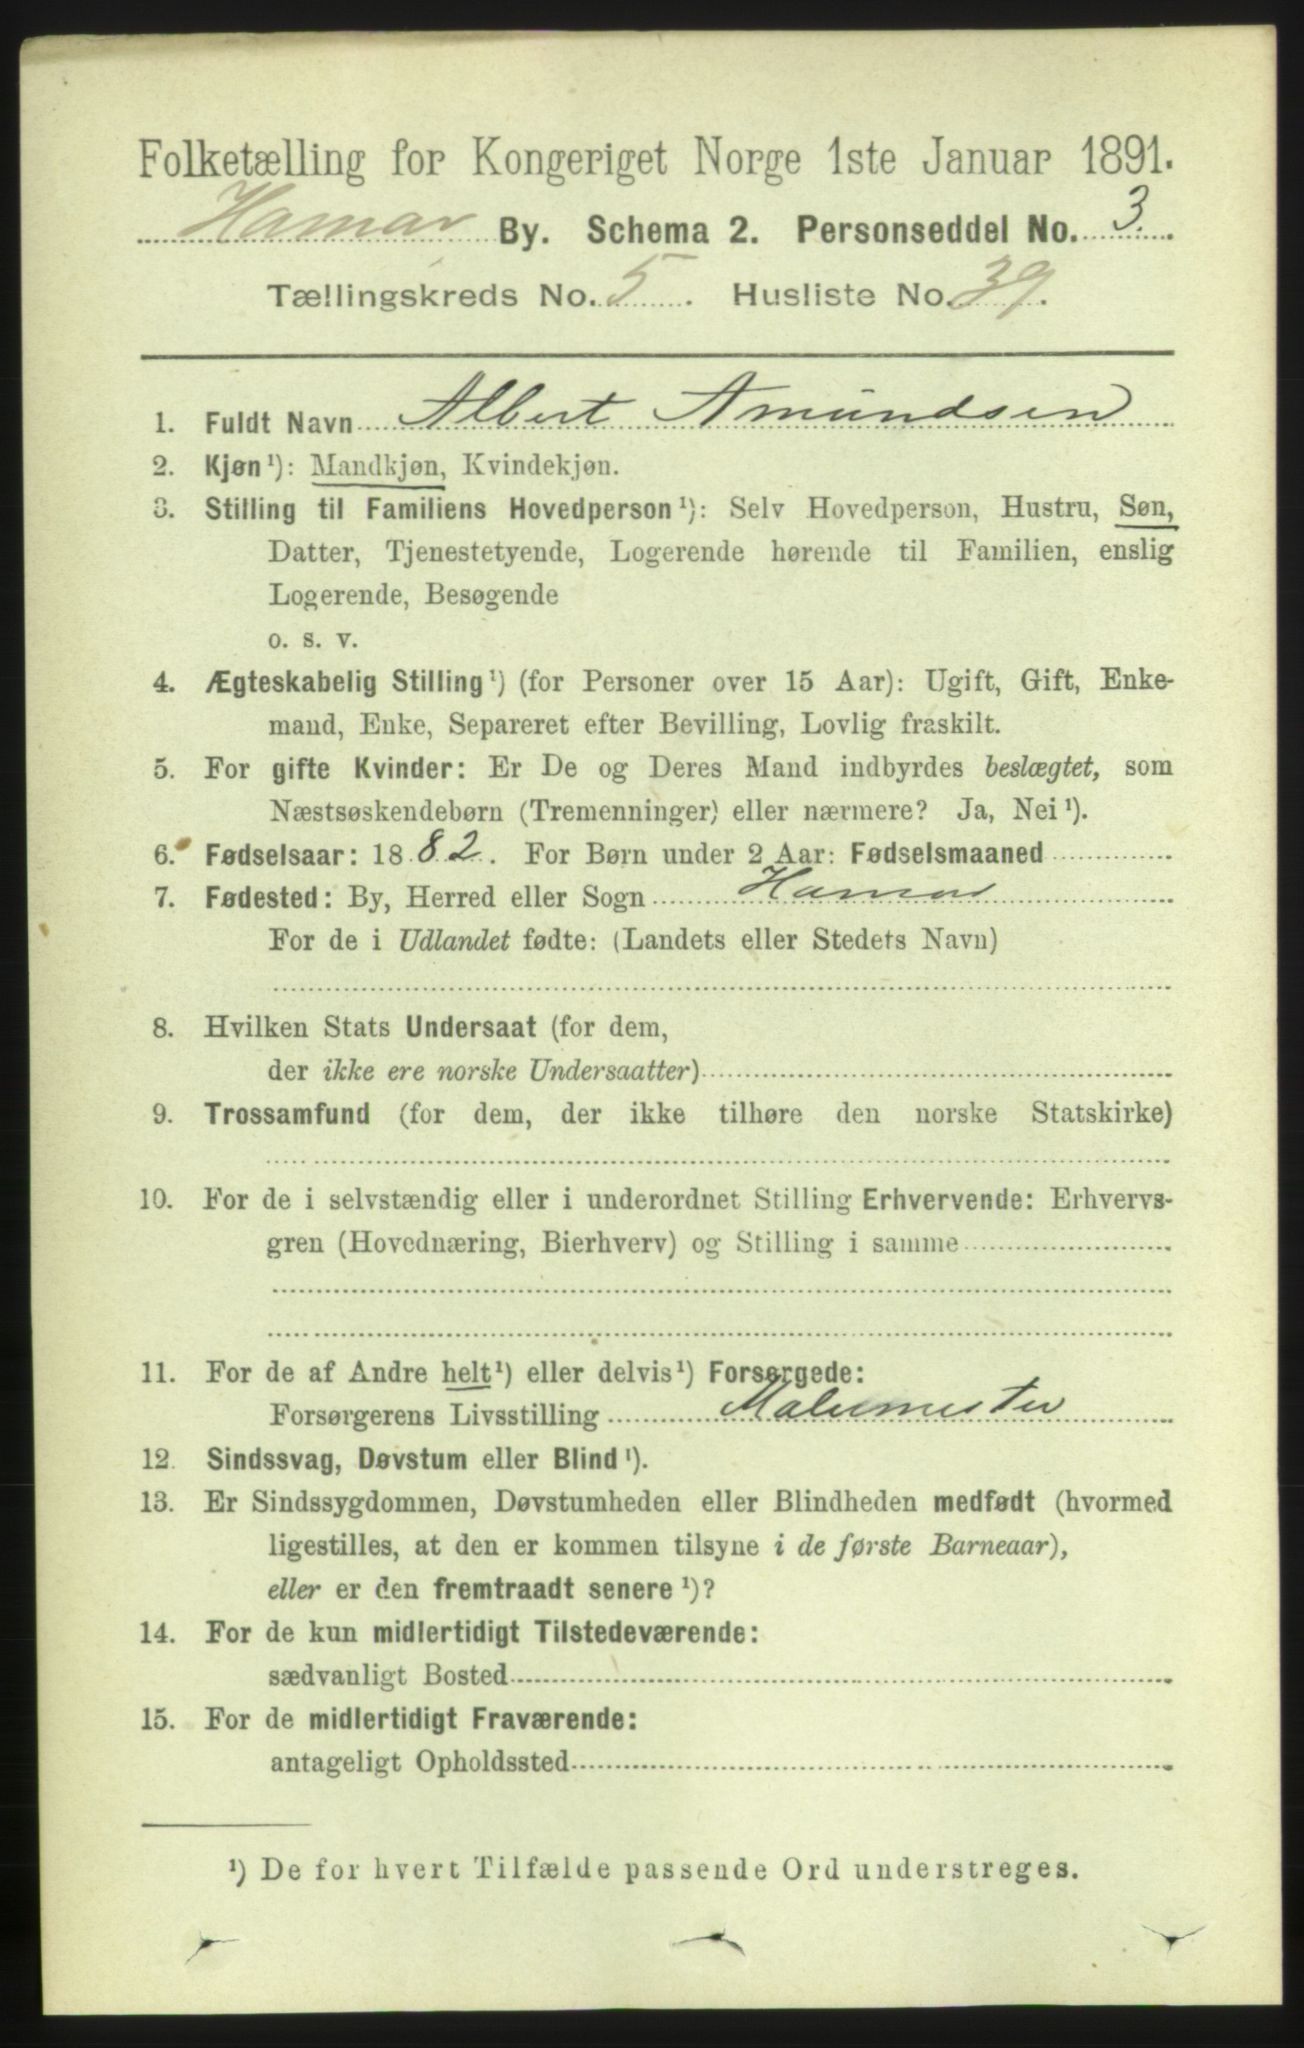 Folketælling for Kongeriget Norge 1ste Januar 1891.
Hamar By. Schema 2. Personseddel No. 3.
Tællingskreds No. 5. Husliste No. 39.
1. Fuldt Navn Albert Amundsen
2. Kjøn¹): Mandkjøn, Kvindekjøn.
3. Stilling til Familiens Hovedperson¹): Selv Hovedperson, Hustru, Søn,
Datter, Tjenestetyende, Logerende hørende til Familien, enslig
Logerende, Besøgende
o. s. v.
4. Ægteskabelig Stilling¹) (for Personer over 15 Aar): Ugift, Gift, Enke-
mand, Enke, Separeret efter Bevilling, Lovlig fraskilt.
5. For gifte Kvinder: Er De og Deres Mand indbyrdes beslægtet, som
Næstsøskendebørn (Tremenninger) eller nærmere? Ja, Nei¹).
6. Fødselsaar: 1882. For Børn under 2 Aar: Fødselsmaaned
7. Fødested: By, Herred eller Sogn Hamar
For de i Udlandet fødte: (Landets eller Stedets Navn)
8. Hvilken Stats Undersaat (for dem,
der ikke ere norske Undersaatter)
9. Trossamfund (for dem, der ikke tilhøre den norske Statskirke)
10. For de i selvstændig eller i underordnet Stilling Erhvervende: Erhvervs-
gren (Hovednæring, Bierhverv) og Stilling i samme
11. For de af Andre helt¹) eller delvis¹) Forsørgede:
Forsørgerens Livsstilling Malermester
12. Sindssvag, Døvstum eller Blind¹).
13. Er Sindssygdommen, Døvstumheden eller Blindheden medfødt (hvormed
ligestilles, at den er kommen tilsyne i de første Barneaar),
eller er den fremtraadt senere¹)?
14. For de kun midlertidigt Tilstedeværende:
sædvanligt Bosted
15. For de midlertidigt Fraværende:
antageligt Opholdssted
¹) De for hvert Tilfælde passende Ord understreges.